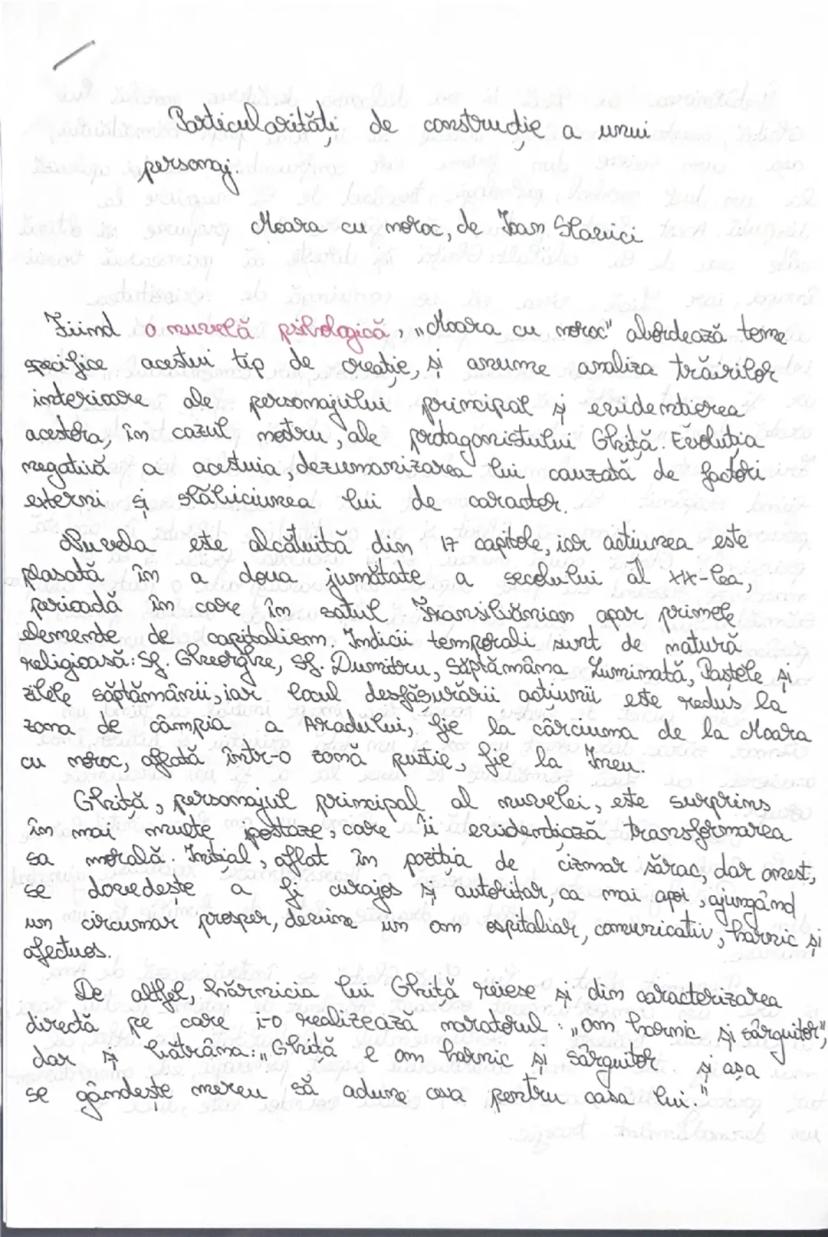 Particularități de construcție a unui
personaj
Moara cu noroc, de Ioan Slavici
Fiind o nuvelă psihologică, „Moara cu noroc" abordează teme
specifice acestui tip de creație, și anume analiza trăirilor
interioare ale personajului principal și evidențierea
acestora, în cazul nostru, ale protagonistului Ghiță. Evoluția
negativă a acestuia, dezumanizarea lui cauzată de factori
externi și slăbiciunea lui de caracter.
Nuvela este alcătuită din 17 capitole, iar acțiunea este
plasată în a doua jumătate a secolului al XX-lea,
perioadă în care în satul Transilvănian apar primele
elemente de capitalism. Indicii temporali sunt de natură
religioasă: Sf. Gheorghe, Sf. Dumitru, Săptămâna Luminată, Paștele și
zilele săptămânii, iar locul desfășurării acțiunii este redus la
zona de câmpia a Aradului, fie la cârciuma de la Moara
cu noroc, aflată într-o zonă pustie, fie la Ineu.
Ghiță, personajul principal al nuvelei, este surprins
în mai multe postaze, care îi evidențiază transformarea
sa morală. Inițial, aflat în poziția de cizmar sărac, dar onest,
se dovedește a fi curajos și autoritar, ca mai apoi, ajungând
un cârciumar prosper, devine un om ospitaliar, comunicativ, harnic și
afectuos.
De altfel, hărnicia lui Ghiță reiese și din caracterizarea
directă pe care i-o realizează naratorul: „om harnic și sârguitor",
dar și bătrâna: „Ghiță e om harnic și sârguitor și așa
se gândește mereu să adune ceva pentru casa lui."